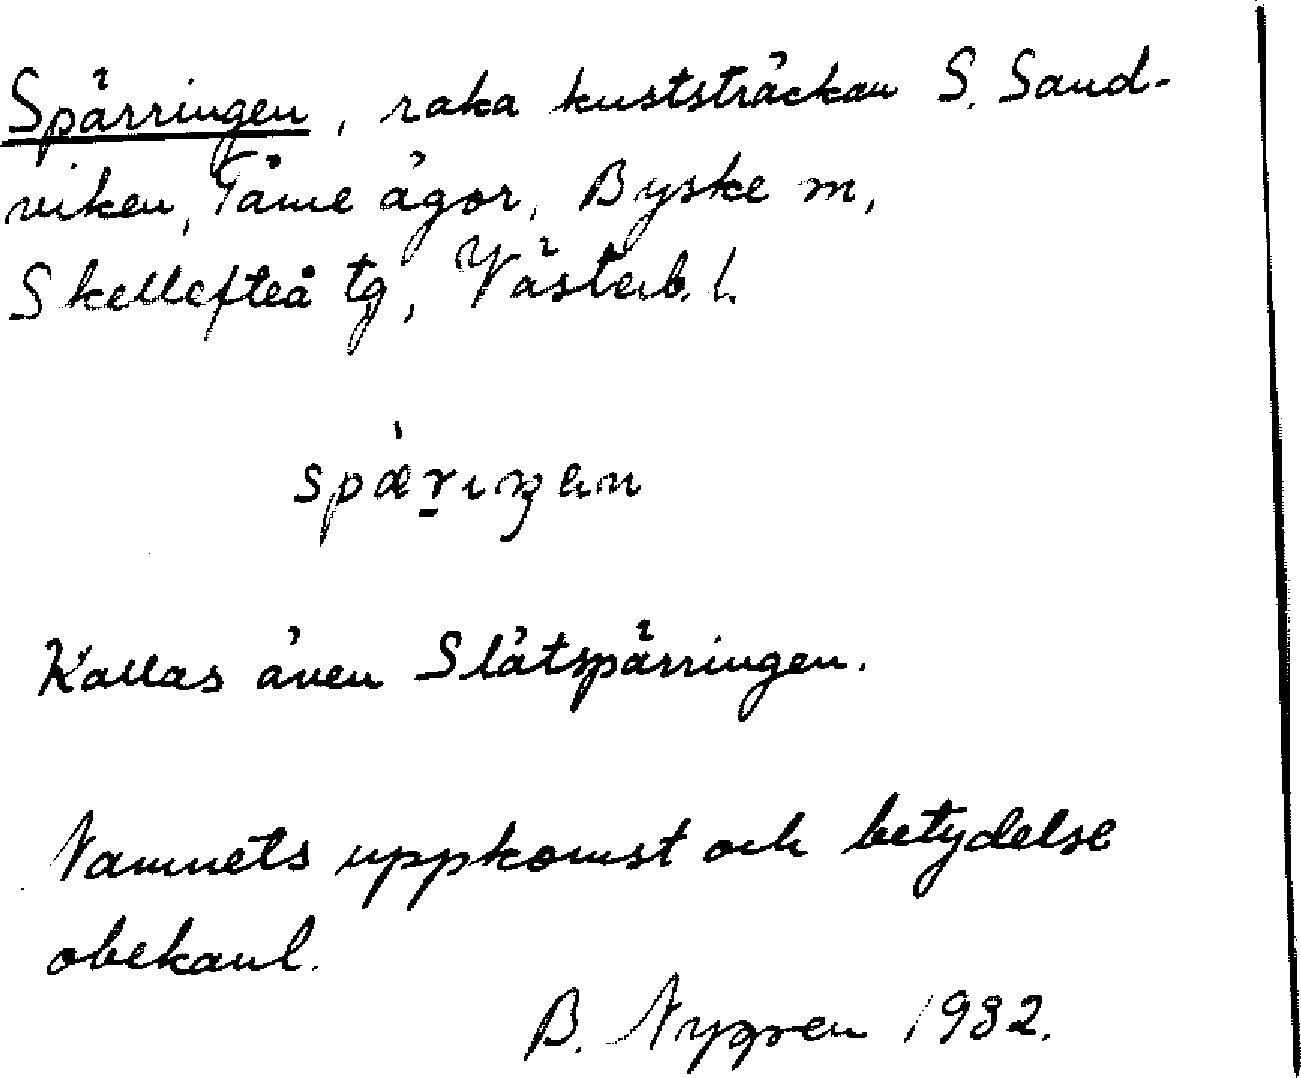 Spärringen, raka kuststräckan S. Sand-
viken, Tåme ägor, Byske m,
Skellefteå tg, Västerb. l.
spæriŋen
Kallas även Slätspärringen.
Namnets uppkomst och betydelse
obekant.
B. Nygren 1932.